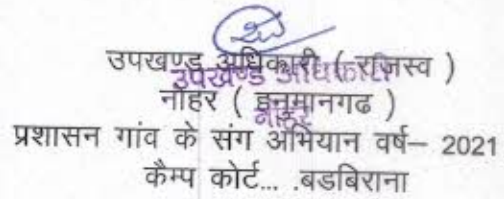 उपखण्ड अधिकारी ( राजस्व )
उपखण्ड अधिकारी
नोहर ( हनुमानगढ )
नोहर
प्रशासन गांव के संग अभियान वर्ष– 2021
कैम्प कोर्ट... .बडबिराना